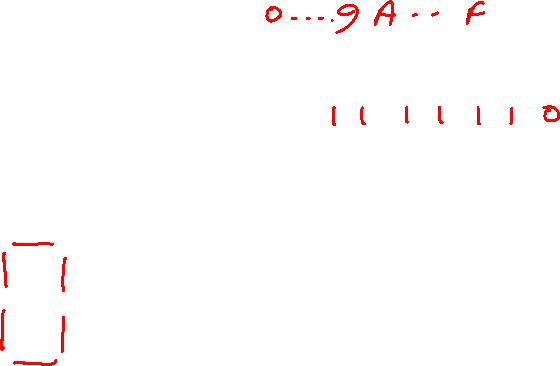 0.....9 A.. F
1 1 1 1 1 1 0